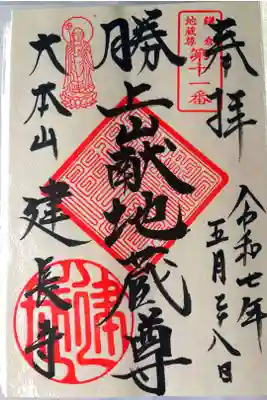 鎌倉
地蔵尊
第十一番
奉拝
令和七年
五月二十八日
勝上献地蔵尊
大本山 建長寺